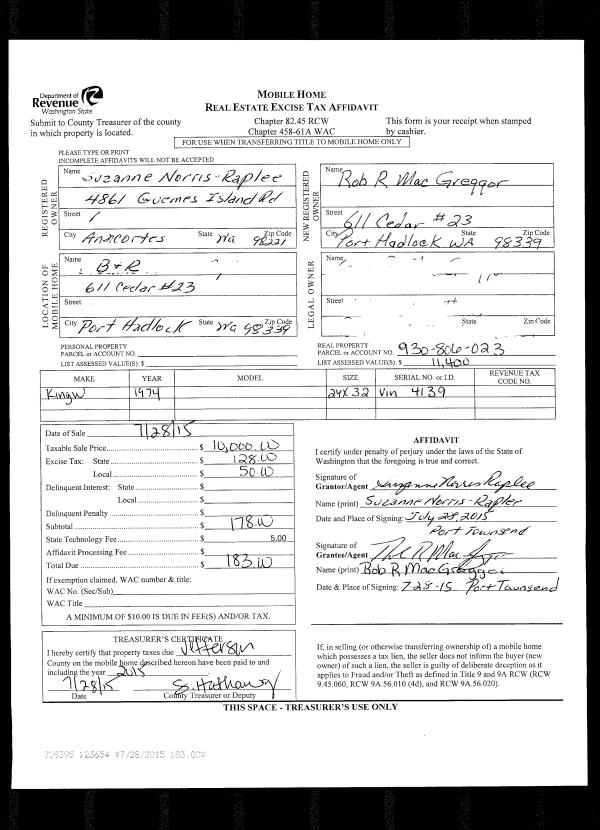 Department of
Revenue
Washington State
MOBILE HOME
REAL ESTATE EXCISE TAX AFFIDAVIT
Submit to County Treasurer of the county
in which property is located.
Chapter 82.45 RCW
Chapter 458-61A WAC
This form is your receipt when stamped
by cashier.
FOR USE WHEN TRANSFERRING TITLE TO MOBILE HOME ONLY
PLEASE TYPE OR PRINT
INCOMPLETE AFFIDAVITS WILL NOT BE ACCEPTED
REGISTERED OWNER
Name Suzanne Norris-Raplee
4861 Guemes Island Rd
Street
City Anacortes State Wa Zip Code 98221
NEW REGISTERED OWNER
Name Rob R Mac Greggor
Street 611 Cedar #23
City Port Hadlock WA State Zip Code 98339
LOCATION OF MOBILE HOME
Name B & R
611 Cedar #23
Street
City Port Hadlock State Wa Zip Code 98339
LEGAL OWNER
Name
Street
State Zip Code
PERSONAL PROPERTY
PARCEL or ACCOUNT NO.
LIST ASSESSED VALUE(S): $
REAL PROPERTY
PARCEL or ACCOUNT NO. 930-806-023
LIST ASSESSED VALUE(S): $ 11,400
MAKE YEAR MODEL SIZE SERIAL NO. or I.D. REVENUE TAX CODE NO.
Kingw 1974 24X32 Vin 4139
Date of Sale 7/28/15
Taxable Sale Price $ 10,000.00
Excise Tax: State $ 128.00
Local $ 50.00
Delinquent Interest: State $
Local $
Delinquent Penalty $
Subtotal $ 178.00
State Technology Fee $ 5.00
Affidavit Processing Fee $
Total Due $ 183.00
If exemption claimed, WAC number & title:
WAC No. (Sec/Sub)
WAC Title
A MINIMUM OF $10.00 IS DUE IN FEE(S) AND/OR TAX.
AFFIDAVIT
I certify under penalty of perjury under the laws of the State of
Washington that the foregoing is true and correct.
Signature of
Grantor/Agent Suzanne Norris Raplee
Name (print) Suzanne Norris-Raplee
Date and Place of Signing: July 28, 2015
Port Townsend
Signature of
Grantee/Agent
Name (print) Rob R Mac Greggor
Date & Place of Signing: 7-28-15 Port Townsend
TREASURER'S CERTIFICATE
I hereby certify that property taxes due Jefferson
County on the mobile home described hereon have been paid to and
including the year 2015
7/28/15 S. Hathaway
Date County Treasurer or Deputy
If, in selling (or otherwise transferring ownership of) a mobile home
which possesses a tax lien, the seller does not inform the buyer (new
owner) of such a lien, the seller is guilty of deliberate deception as it
applies to Fraud and/or Theft as defined in Title 9 and 9A RCW (RCW
9.45.060, RCW 9A.56.010 (4d), and RCW 9A.56.020).
THIS SPACE - TREASURER'S USE ONLY
709395 123654 #7/28/2015 183.00%